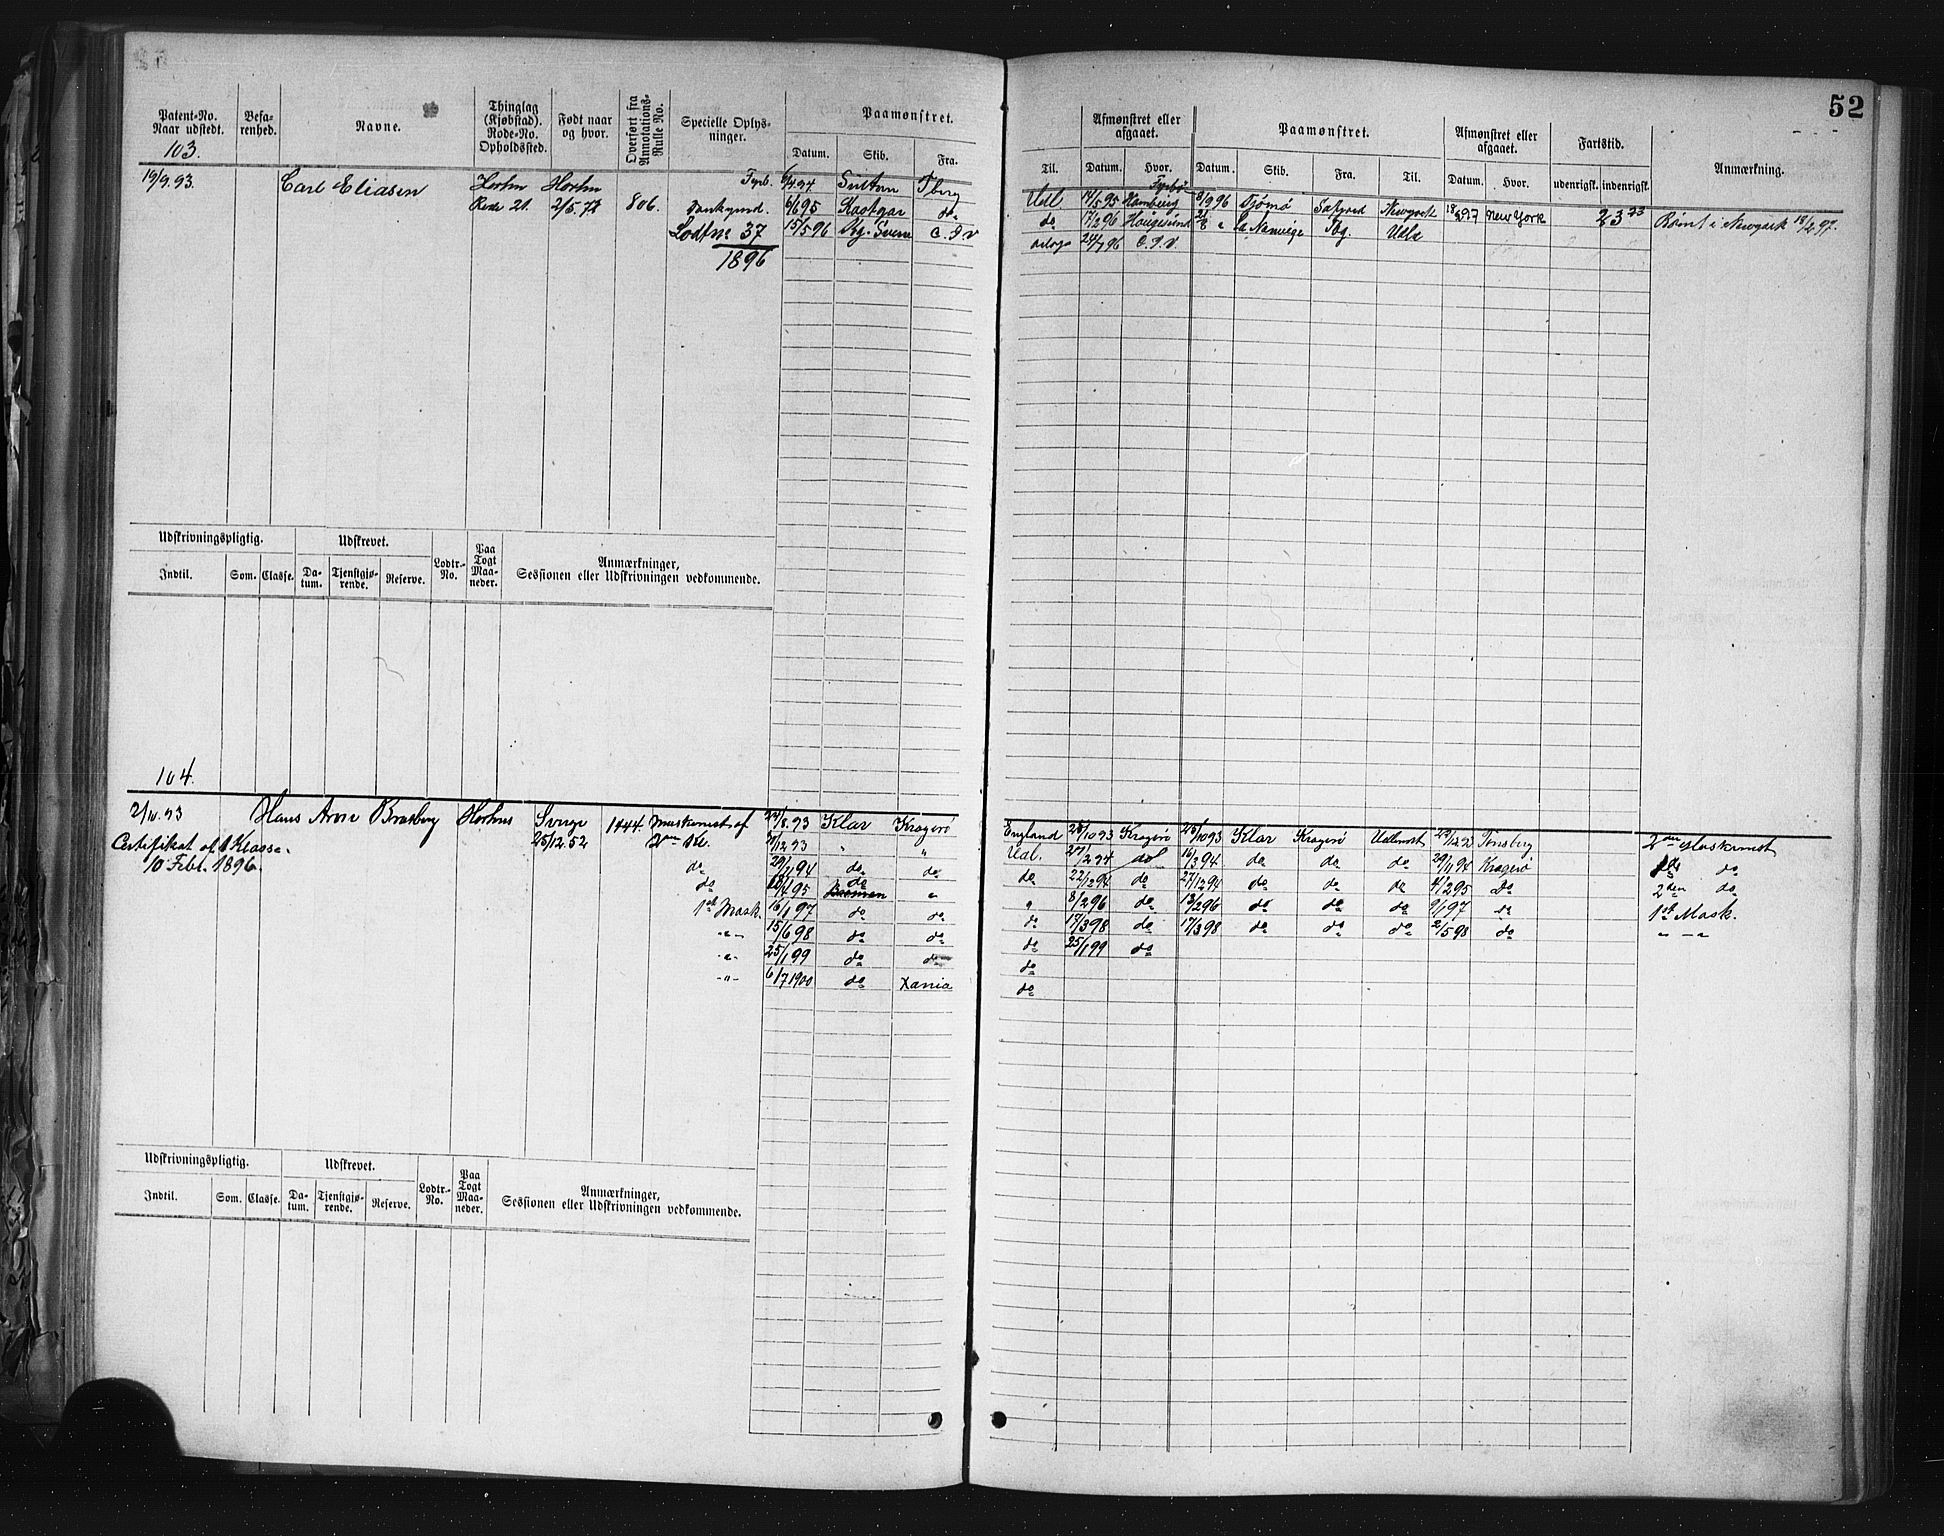 52
Patent-No.
Naar udstedt.
103.
Befa-
renhed.
Navne.
Thinglag
(Kjøbstad).
Rode-No.
Opholdssted.
Født naar
og hvor.
Overført fra
Annotations-
Rulle No.
Specielle Oplys-
ninger.
Paamønstret.
Datum. Skib. Fra.
Til.
Afmønstret eller
afgaaet.
Datum. Hvor.
Paamønstret.
Datum. Skib. Fra. Til.
Afmønstret eller
afgaaet.
Datum. Hvor.
Fartstid.
udenrigsk. indenrigsk.
Anmærkning.
19/9.93. Carl Eliasen Horten Horten Fyrb. Sultan Tberg
Rode 21. 2/5.72 806. 6/6 95 Kastgar do
Lodtnr 37 15/5 96 Kg. Sverre C.I.V
1896
Udl 14/5 95 Hamburg 8/9 96 Tjømø Newyork New York 23 Rømt i Newyork 18/2 97.
do 17/2 96 Haugesund Tbg. Udl
24/7 96 C.I.V.
Udskrivningspligtig. Udskrevet. Lodtr-
No. Paa
Togt
Maa-
neder. Anmærkninger,
Sessionen eller Udskrivningen vedkommende.
Indtil. Som. Classe. Da-
tum. Tjenstgjø-
rende. Reserve.
104.
2/10.93 Hans Arve Hortens Sverige 1444. Maskinist af /8.93 Klar Kragerø
Certifikat af 1 Klasse. 25/12.52 2den Kl. /12 93 " "
10 Febr. 1896. do 29/11 94 do do
do /1 95 do "
1ste Mask. 16/1 97 do do
-"- 15/6 98 do do
-"- 25/1 99 do do
-"- 6/7 1900 do Xania
England 25/10 93 Kragerø 25/10 93 Klar Kragerø Udlandet 29/12 93 Tønsberg 2den Maskinist
Udl. 27/2 94 do 16/3 94 do do do 29/11 94 Kragerø do do
do 22/12 94 do 27/12 94 do do do 4/2 95 do 2den do
" 8/2 96 do 13/2 96 do do do 9/1 97 do 1ste Mask.
do 17/3 98 do 17/3 98 do do do 2/5 98 do " -"
do 25/1 99 do
do
do
Udskrivningspligtig. Udskrevet. Lodtr-
No. Paa
Togt
Maa-
neder. Anmærkninger,
Sessionen eller Udskrivningen vedkommende.
Indtil. Som. Classe. Da-
tum. Tjenstgjø-
rende. Reserve.